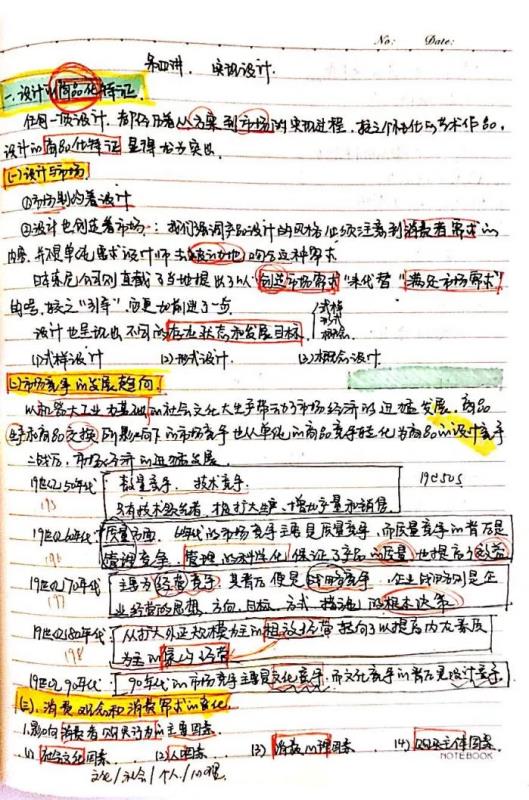 No: Date:
第四讲. 实现设计.
一.设计的商品化特征.
任何一项设计,都存在着从方案到市场的实现过程,较之个性化的艺术作品,
设计的商品化特征显得尤为突出
(一)设计与市场
①市场制约着设计
②设计也创造着市场:我们强调产品设计的风格必须注意到消费者需求的
内容,并不是单纯要求设计师去被动地响应这种需求
日本索尼公司则直截了当地提出了以"创造市场需求"来代替"满足市场需求"
的口号,较之"引导"应更加前进了一步
式样
形式
概念
设计也呈现出不同的存在状态和发展目标
(1)式样设计 (2)形式设计. (3)概念设计
(二)市场竞争的发展趋向.
以机器大工业为基础的社会文化大生产带动了市场经济的迅猛发展,商品
和商品交换的影响下的市场竞争也从单纯的商品竞争转化为商品的设计竞争
二战后,市场经济的迅猛发展.
19世纪50年代: 数量竞争、技术竞争. 1950s
195
只有技术 扩大生产、增加产量和销售.
19世纪60年代: 质量方面. 60年代的市场竞争主要是质量竞争,而质量竞争的背后是
196
管理竞争,管理的科学化保证了产品的质量,也提高了效益
19世纪70年代: 主要为经营竞争,其背后便是战略竞争,企业战略则是企
197
业经营的思想、方向、目标、方式、措施的根本决策
19世纪80年代: 从扩大外延规模为主的粗放经营转向了以提高内在素质
198
为主的集约经营
19世纪90年代: 90年代的市场竞争主要是文化竞争,而文化竞争的背后是设计竞争.
(三).消费观念和消费需求的变化.
1.影响消费者购买行为的主要因素.
(1)社会文化因素. (2)个人因素 (3)消费心理因素. (4)购买主体因素.
文化/社会/个人/心理
NOTEBOOK